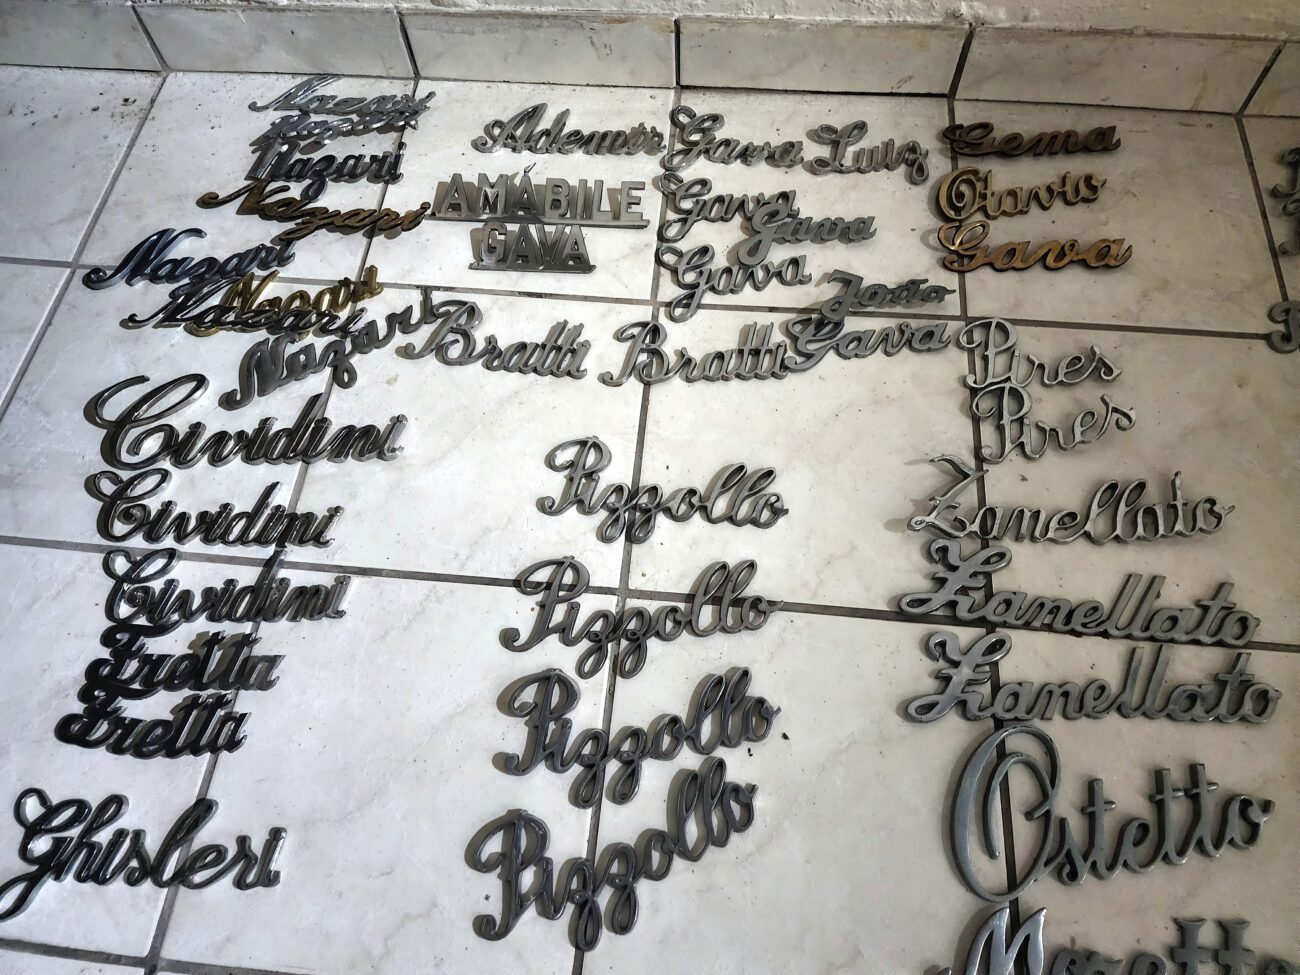 Nazari
Nazari
Nazari
Nazari
Nazari
Nazari
Nazari
Nazari
Cividini
Cividini
Cividini
Fretta
Fretta
Ghisleri
Ademir
AMÁBILE
GAVA
Bratti
Bratti
Pizzollo
Pizzollo
Pizzollo
Pizzollo
Gava Luiz
Gava
Gava
Gava
João
Gava
Gema
Otavio
Gava
Pires
Pires
Zanellato
Zanellato
Zanellato
Ostetto